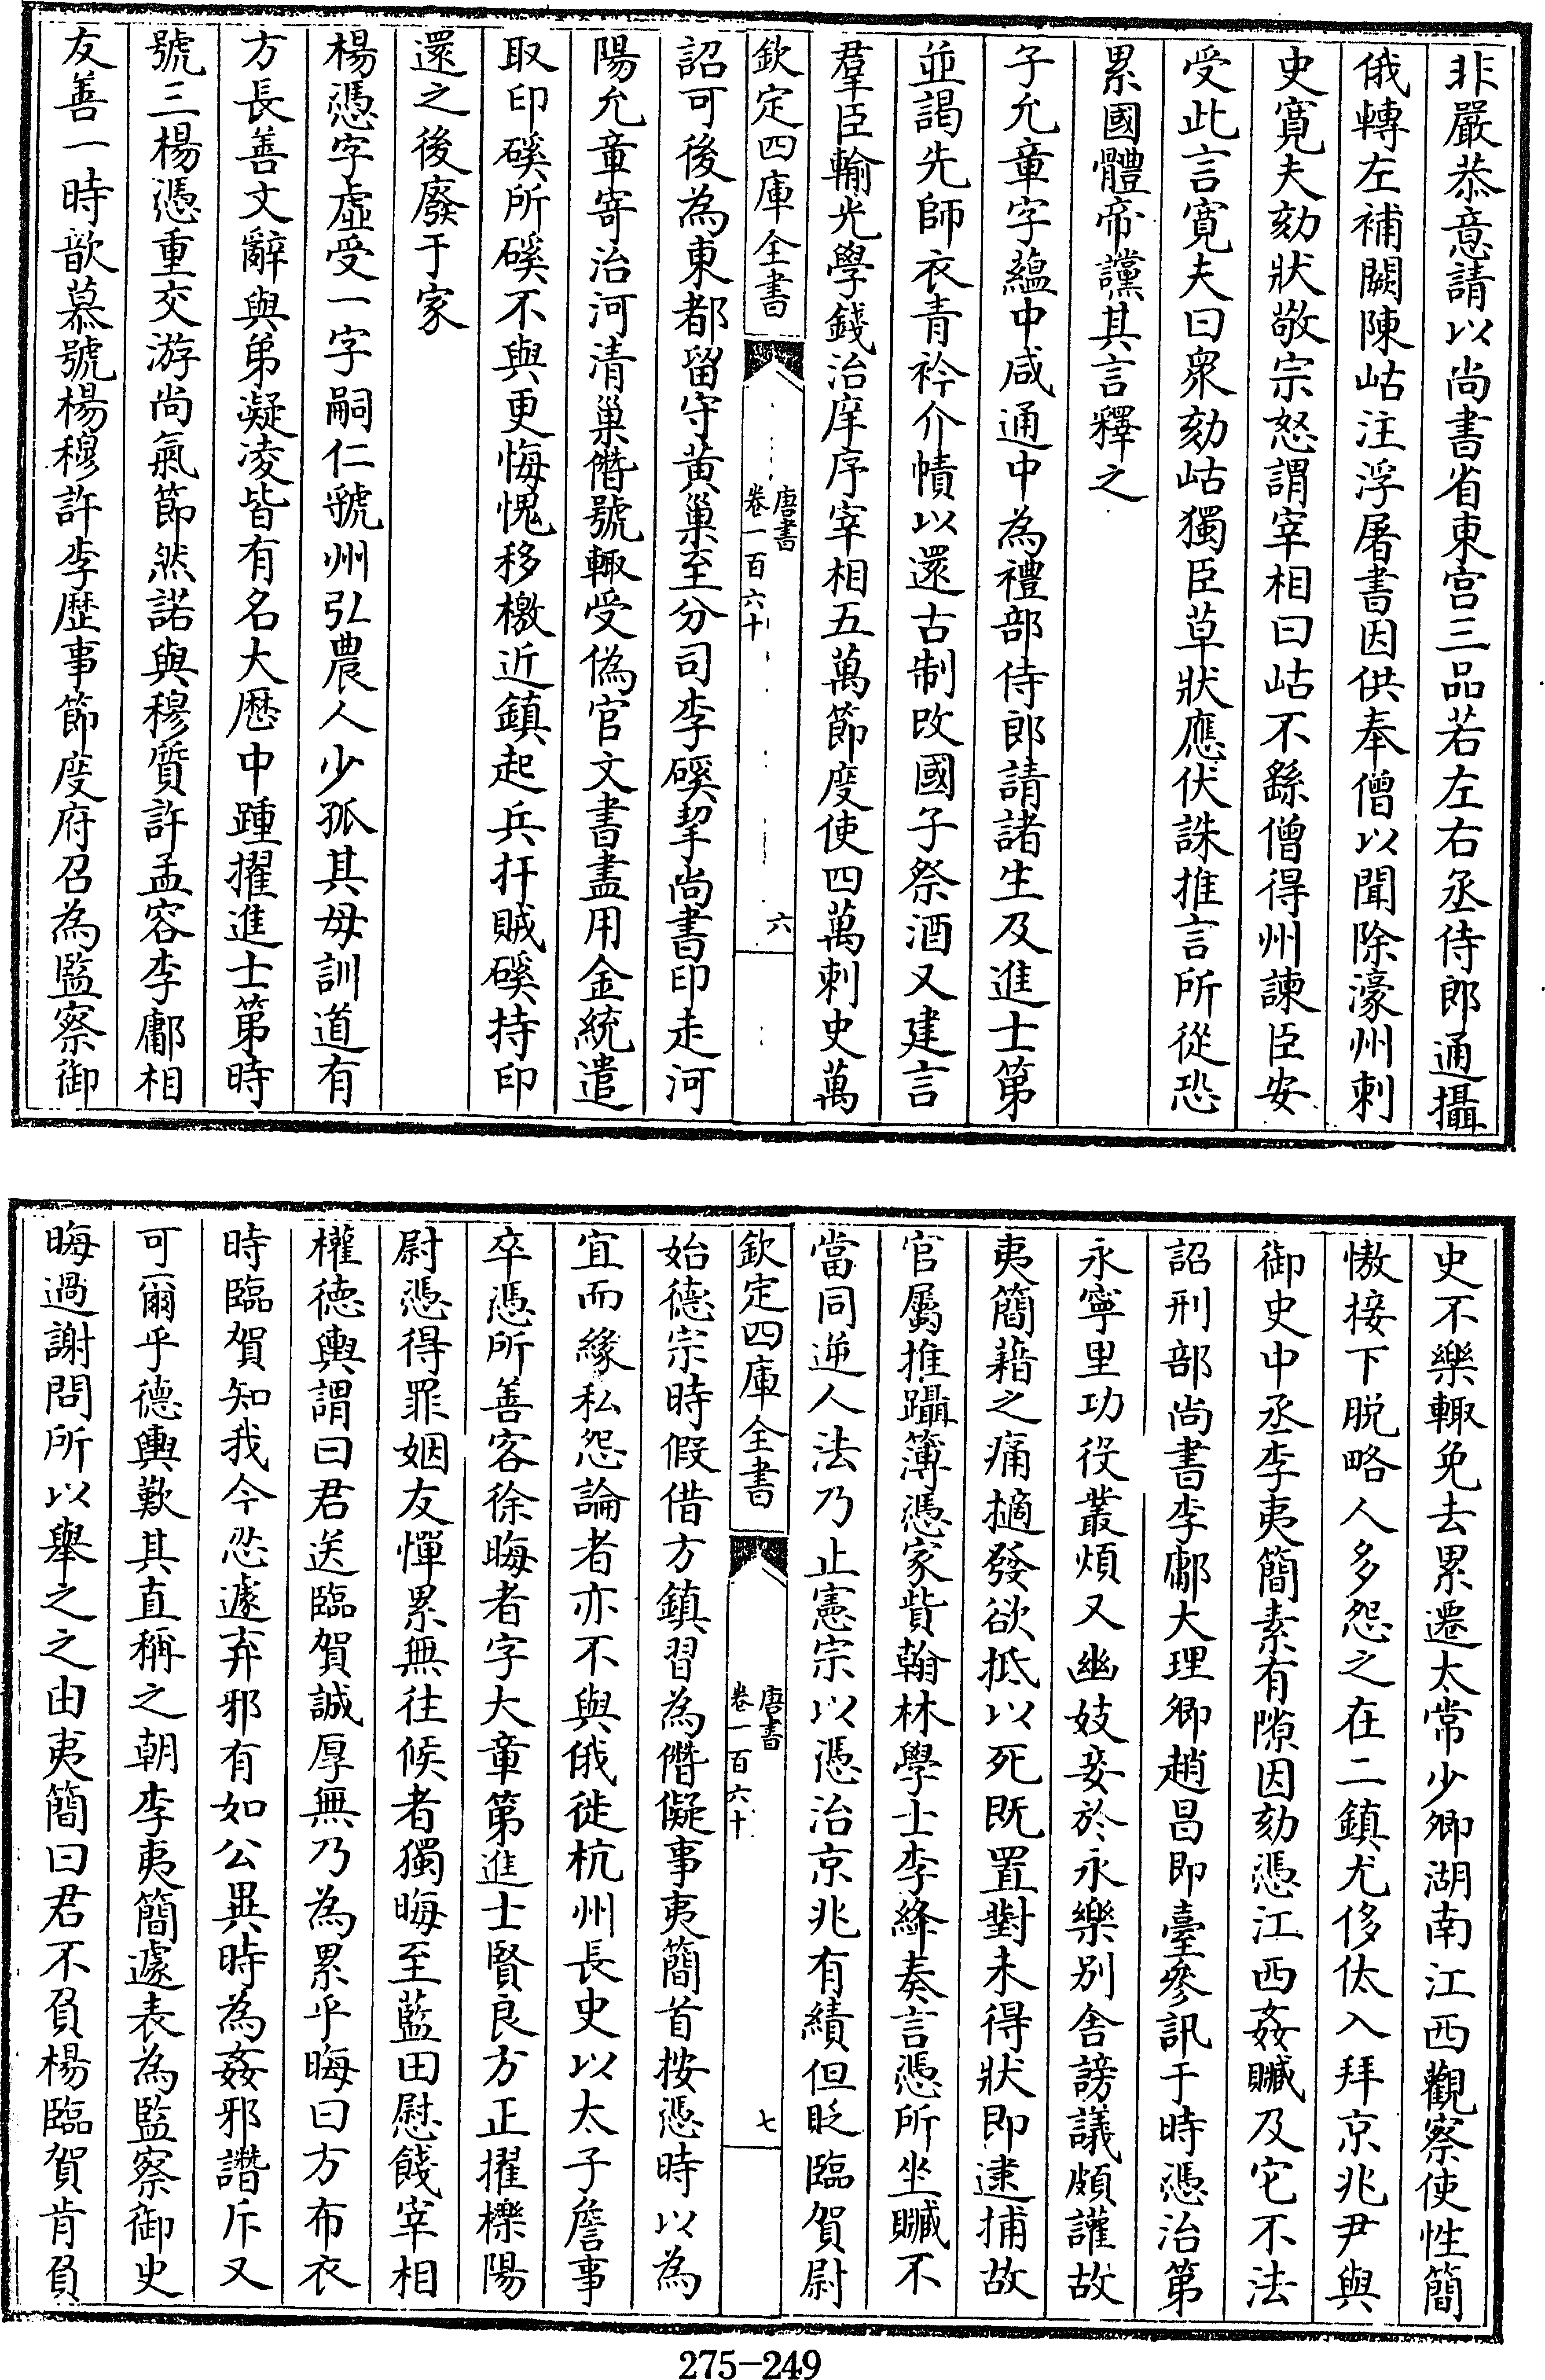 非嚴恭意請以尚書省東宫三品若左右丞侍郎通攝
俄轉左補闕陳岵注浮屠書因供奉僧以聞除濠州刺
史寛夫劾狀敬宗怒謂宰相曰岵不繇僧得州諫臣安
受此言寛夫曰衆劾岵獨臣草狀應伏誅推言所從恐
累國體帝讜其言釋之
子允章字藴中咸通中為禮部侍郎請諸生及進士第
並謁先師衣青衿介幘以還古制改國子祭酒又建言
羣臣輸光學錢治庠序宰相五萬節度使四萬刺史萬
欽定四庫全書
唐書
卷一百六十
六
詔可後為東都留守黄巢至分司李磎挈尚書印走河
陽允章寄治河清巢僭號輙受偽官文書盡用金統遣
取印磎所磎不與更悔愧移檄近鎮起兵扞賊磎持印
還之後廢于家
楊憑字虛受一字嗣仁虢州弘農人少孤其母訓道有
方長善文辭與弟凝凌皆有名大歴中踵擢進士第時
號三楊憑重交游尚氣節然諾與穆質許孟容李鄘相
友善一時歆慕號楊穆許李歴事節度府召為監察御
史不樂輙免去累遷太常少卿湖南江西觀察使性簡
慠接下脱略人多怨之在二鎮尤侈汰入拜京兆尹與
御史中丞李夷簡素有隙因劾憑江西姦贓及它不法
詔刑部尚書李鄘大理卿趙昌即臺參訊于時憑治第
永寧里功役叢煩又幽妓妾於永樂别舍謗議頗讙故
夷簡藉之痛擿發欲抵以死既置對未得狀即逮捕故
官屬推躡簿憑家貲翰林學士李絳奏言憑所坐贓不
當同逆人法乃止憲宗以憑治京兆有績但貶臨賀尉
欽定四庫全書
唐書
卷一百六十
七
始德宗時假借方鎮習為僭儗事夷簡首按憑時以為
宜而緣私怨論者亦不與俄徙杭州長史以太子詹事
卒憑所善客徐晦者字大章第進士賢良方正擢櫟陽
尉憑得罪姻友憚累無往候者獨晦至藍田慰餞宰相
權德輿謂曰君送臨賀誠厚無乃為累乎晦曰方布衣
時臨賀知我今忍遽弃邪有如公異時為姦邪譖斥又
可爾乎德輿歎其直稱之朝李夷簡遽表為監察御史
晦過謝問所以舉之之由夷簡曰君不負楊臨賀肯負
275-249